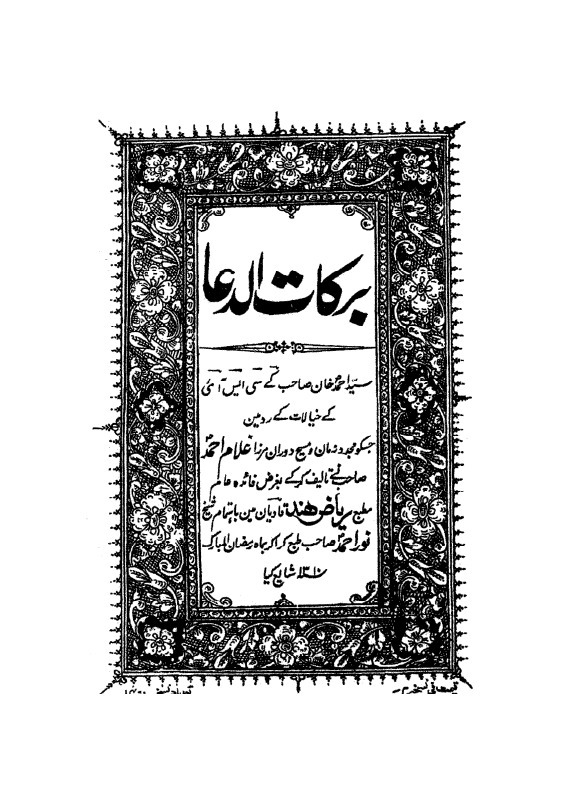 برکات الدعا
سید احمد خان صاحب کے سی ایس آئی
کے خیالات کے رد مین
جسکو مجدد زمان و مسیح دوران مرزا غلام احمد
صاحب نے تالیف کر کے بغرض فائدہ عام
مطبع ریاض ہند قادیان مین باہتمام شیخ
نور احمد صاحب طبع کرا کر بماہ رمضان المبارک
۱۳۱۰ شایع کیا